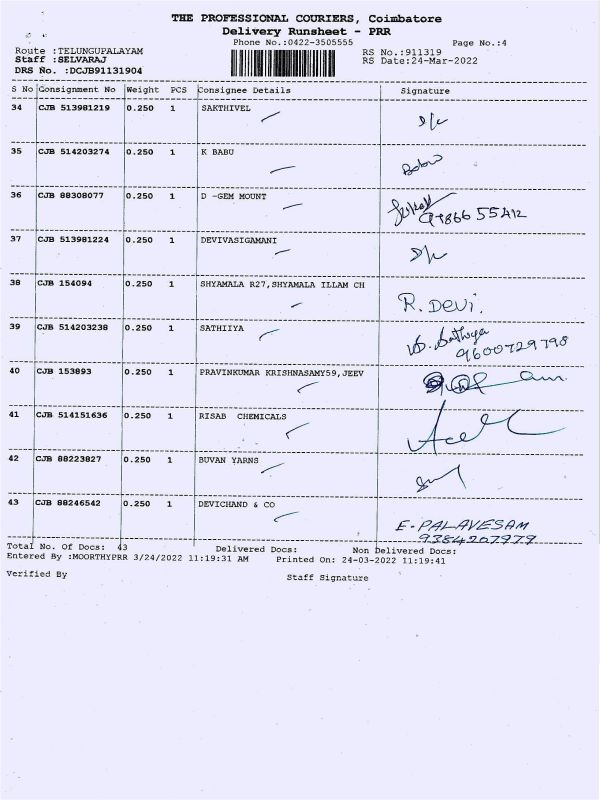 THE PROFESSIONAL COURIERS, Coimbatore
Delivery Runsheet - PRR
Phone No.:0422-3505555 Page No.:4
Route :TELUNGUPALAYAM RS No.:911319
Staff :SELVARAJ RS Date:24-Mar-2022
DRS No. :DCJB91131904
S No Consignment No Weight PCS Consignee Details Signature
34 CJB 513981219 0.250 1 SAKTHIVEL
35 CJB 514203274 0.250 1 K BABU Babu
36 CJB 88308077 0.250 1 D -GEM MOUNT
37 CJB 513981224 0.250 1 DEVIVASIGAMANI
38 CJB 154094 0.250 1 SHYAMALA R27,SHYAMALA ILLAM CH R. DEVI.
39 CJB 514203238 0.250 1 SATHIIYA Sathiya
9600729798
40 CJB 153893 0.250 1 PRAVINKUMAR KRISHNASAMY59,JEEV
41 CJB 514151636 0.250 1 RISAB CHEMICALS
42 CJB 88223827 0.250 1 BUVAN YARNS
43 CJB 88246542 0.250 1 DEVICHAND & CO E-PALAVESAM
9384207979
Total No. Of Docs: 43 Delivered Docs: Non Delivered Docs:
Entered By :MOORTHYPRR 3/24/2022 11:19:31 AM Printed On: 24-03-2022 11:19:41
Verified By Staff Signature